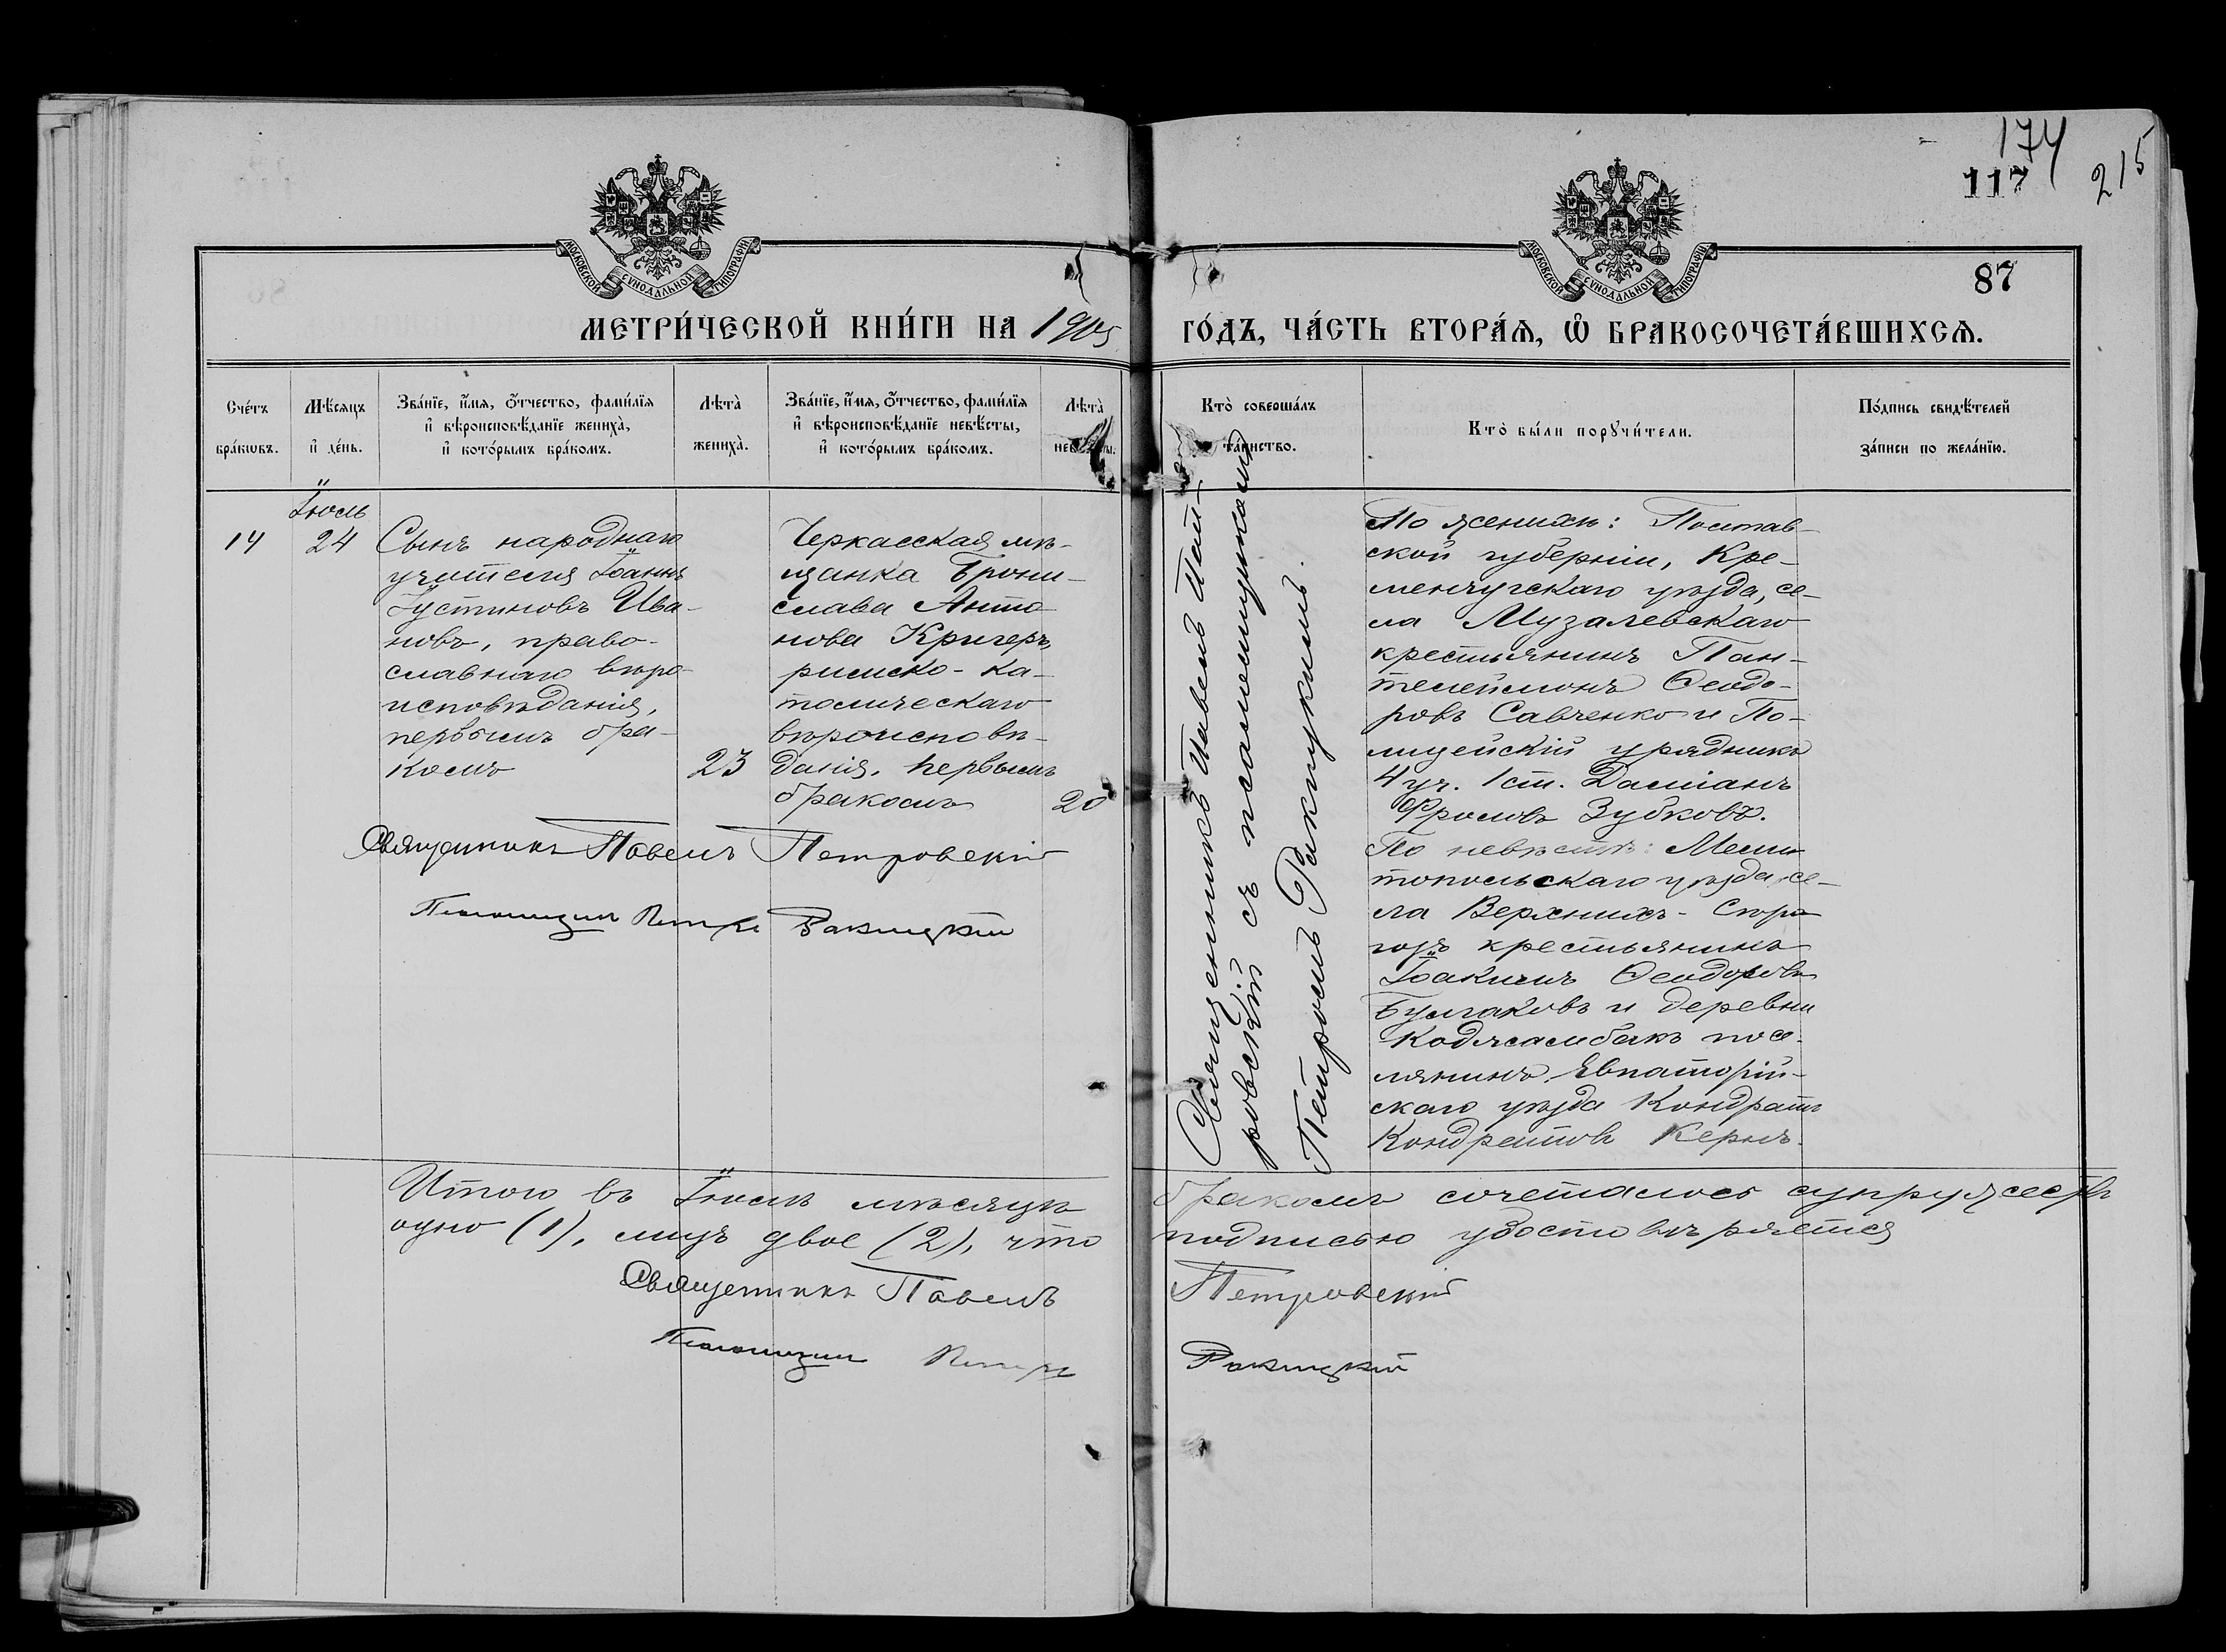 174
117
215
МОСКОВСКОЙ СѴНОДАЛЬНОЙ ТИПОГРАФІИ
МОСКОВСКОЙ СѴНОДАЛЬНОЙ ТИПОГРАФІИ
87
МЕТРИ́ЧЕСКОЙ КНИ́ГИ НА 1905 ГО́ДЪ, ЧА́СТЬ ВТОРА́Ѧ, Ѽ БРАКОСОЧЕТА́ВШИХСѦ.
Сче́тъ
бра́кѡвъ.
Мѣ́сяцъ
и҆ де́нь.
Зва́нїе, и҆́мя, ѻ҆́тчество, фами́лїя
и҆ вѣроисповѣ́данїе жениха̀,
и҆ кото́рымъ бра́комъ.
Лѣта̀
жениха̀.
Зва́нїе, и҆́мя, ѻ҆́тчество, фами́лїя
и҆ вѣроисповѣ́данїе невѣ́сты,
и҆ кото́рымъ бра́комъ.
Лѣта̀
невѣ́сты.
Кто̀ соверша́лъ
та́инство.
Кто̀ бы́ли порꙋчи́тели.
По́дпись свидѣ́телей
за́писи по жела́нїю.
14
Іюль
24
Сынъ народнаго
учителя Іоаннъ
Іустиновъ Ива-
новъ, право-
славнаго вѣро-
исповѣданія,
первымъ бра-
комъ
23
Черкасская мѣ-
щанка Брони-
слава Анто-
нова Кригеръ,
римско-ка-
толическаго
вѣроисповѣ-
данія, первымъ
бракомъ
20
Священникъ Павелъ Петровскій
Псаломщикъ Петръ Ракицкій
Священникъ Павелъ Пет-
ровскій съ псаломщикомъ
Петромъ Ракицкимъ.
По женихѣ: Полтав-
ской губерніи, Кре-
менчугскаго уѣзда, се-
ла Музалевскаго
крестьянинъ Пан-
телеймонъ Ѳеодо-
ровъ Савченко и По-
лицейскій урядникъ
4 уч. 1 ст. Даміанъ
Фроловъ Зубковъ.
По невѣстѣ: Мели-
топольскаго уѣзда, се-
ла Верхнихъ-Сѣро-
гозъ крестьянинъ
Іоакимъ Ѳеодоровъ
Булгаковъ и деревни
Коджамбакъ посе-
лянинъ Евпаторій-
скаго уѣзда Кондратъ
Кондратовъ Кернъ.
Итого въ Іюлѣ мѣсяцѣ бракомъ сочеталось супружествъ
одно (1), лицъ двое (2), что подписью удостовѣряется
Священникъ Павелъ Петровскій
Псаломщикъ Петръ Ракицкій